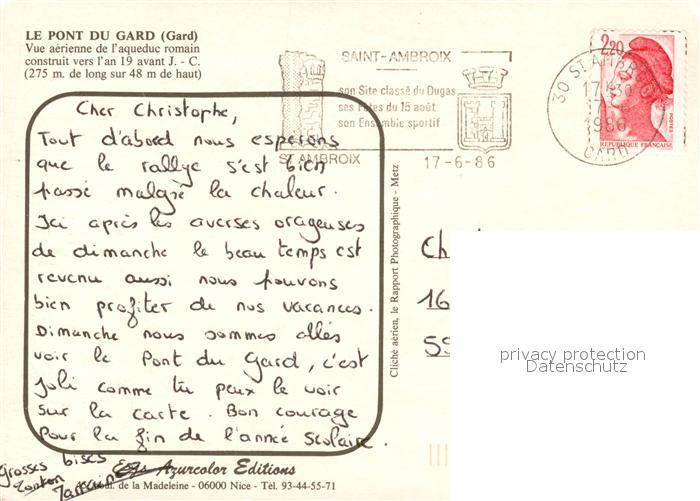 LE PONT DU GARD (Gard)
Vue aérienne de l'aqueduc romain
construit vers l'an 19 avant J. - C.
(275 m. de long sur 48 m de haut)
SAINT-AMBROIX
son Site classé du Dugas
ses Fêtes du 15 août
son Ensemble sportif
ST AMBROIX
17-6-86
30 ST AMBROIX
17H30
1986
GARD
2,20
REPUBLIQUE FRANÇAISE
Cher Christophe,
Tout d'abord nous esperons
que le rallye s'est bien
passé malgré la chaleur.
Ici après les averses orageuses
de dimanche le beau temps est
revenu aussi nous pouvons
bien profiter de nos vacances.
Dimanche nous sommes allés
voir le Pont du Gard, c'est
joli comme tu peux le voir
sur la carte. Bon courage
pour la fin de l'année scolaire.
Grosses bises
Tonton
Cliché aérien, le Rapport Photographique - Metz
Ch
16
55
privacy protection
Datenschutz
Azurcolor Editions
de la Madeleine - 06000 Nice - Tél. 93-44-55-71